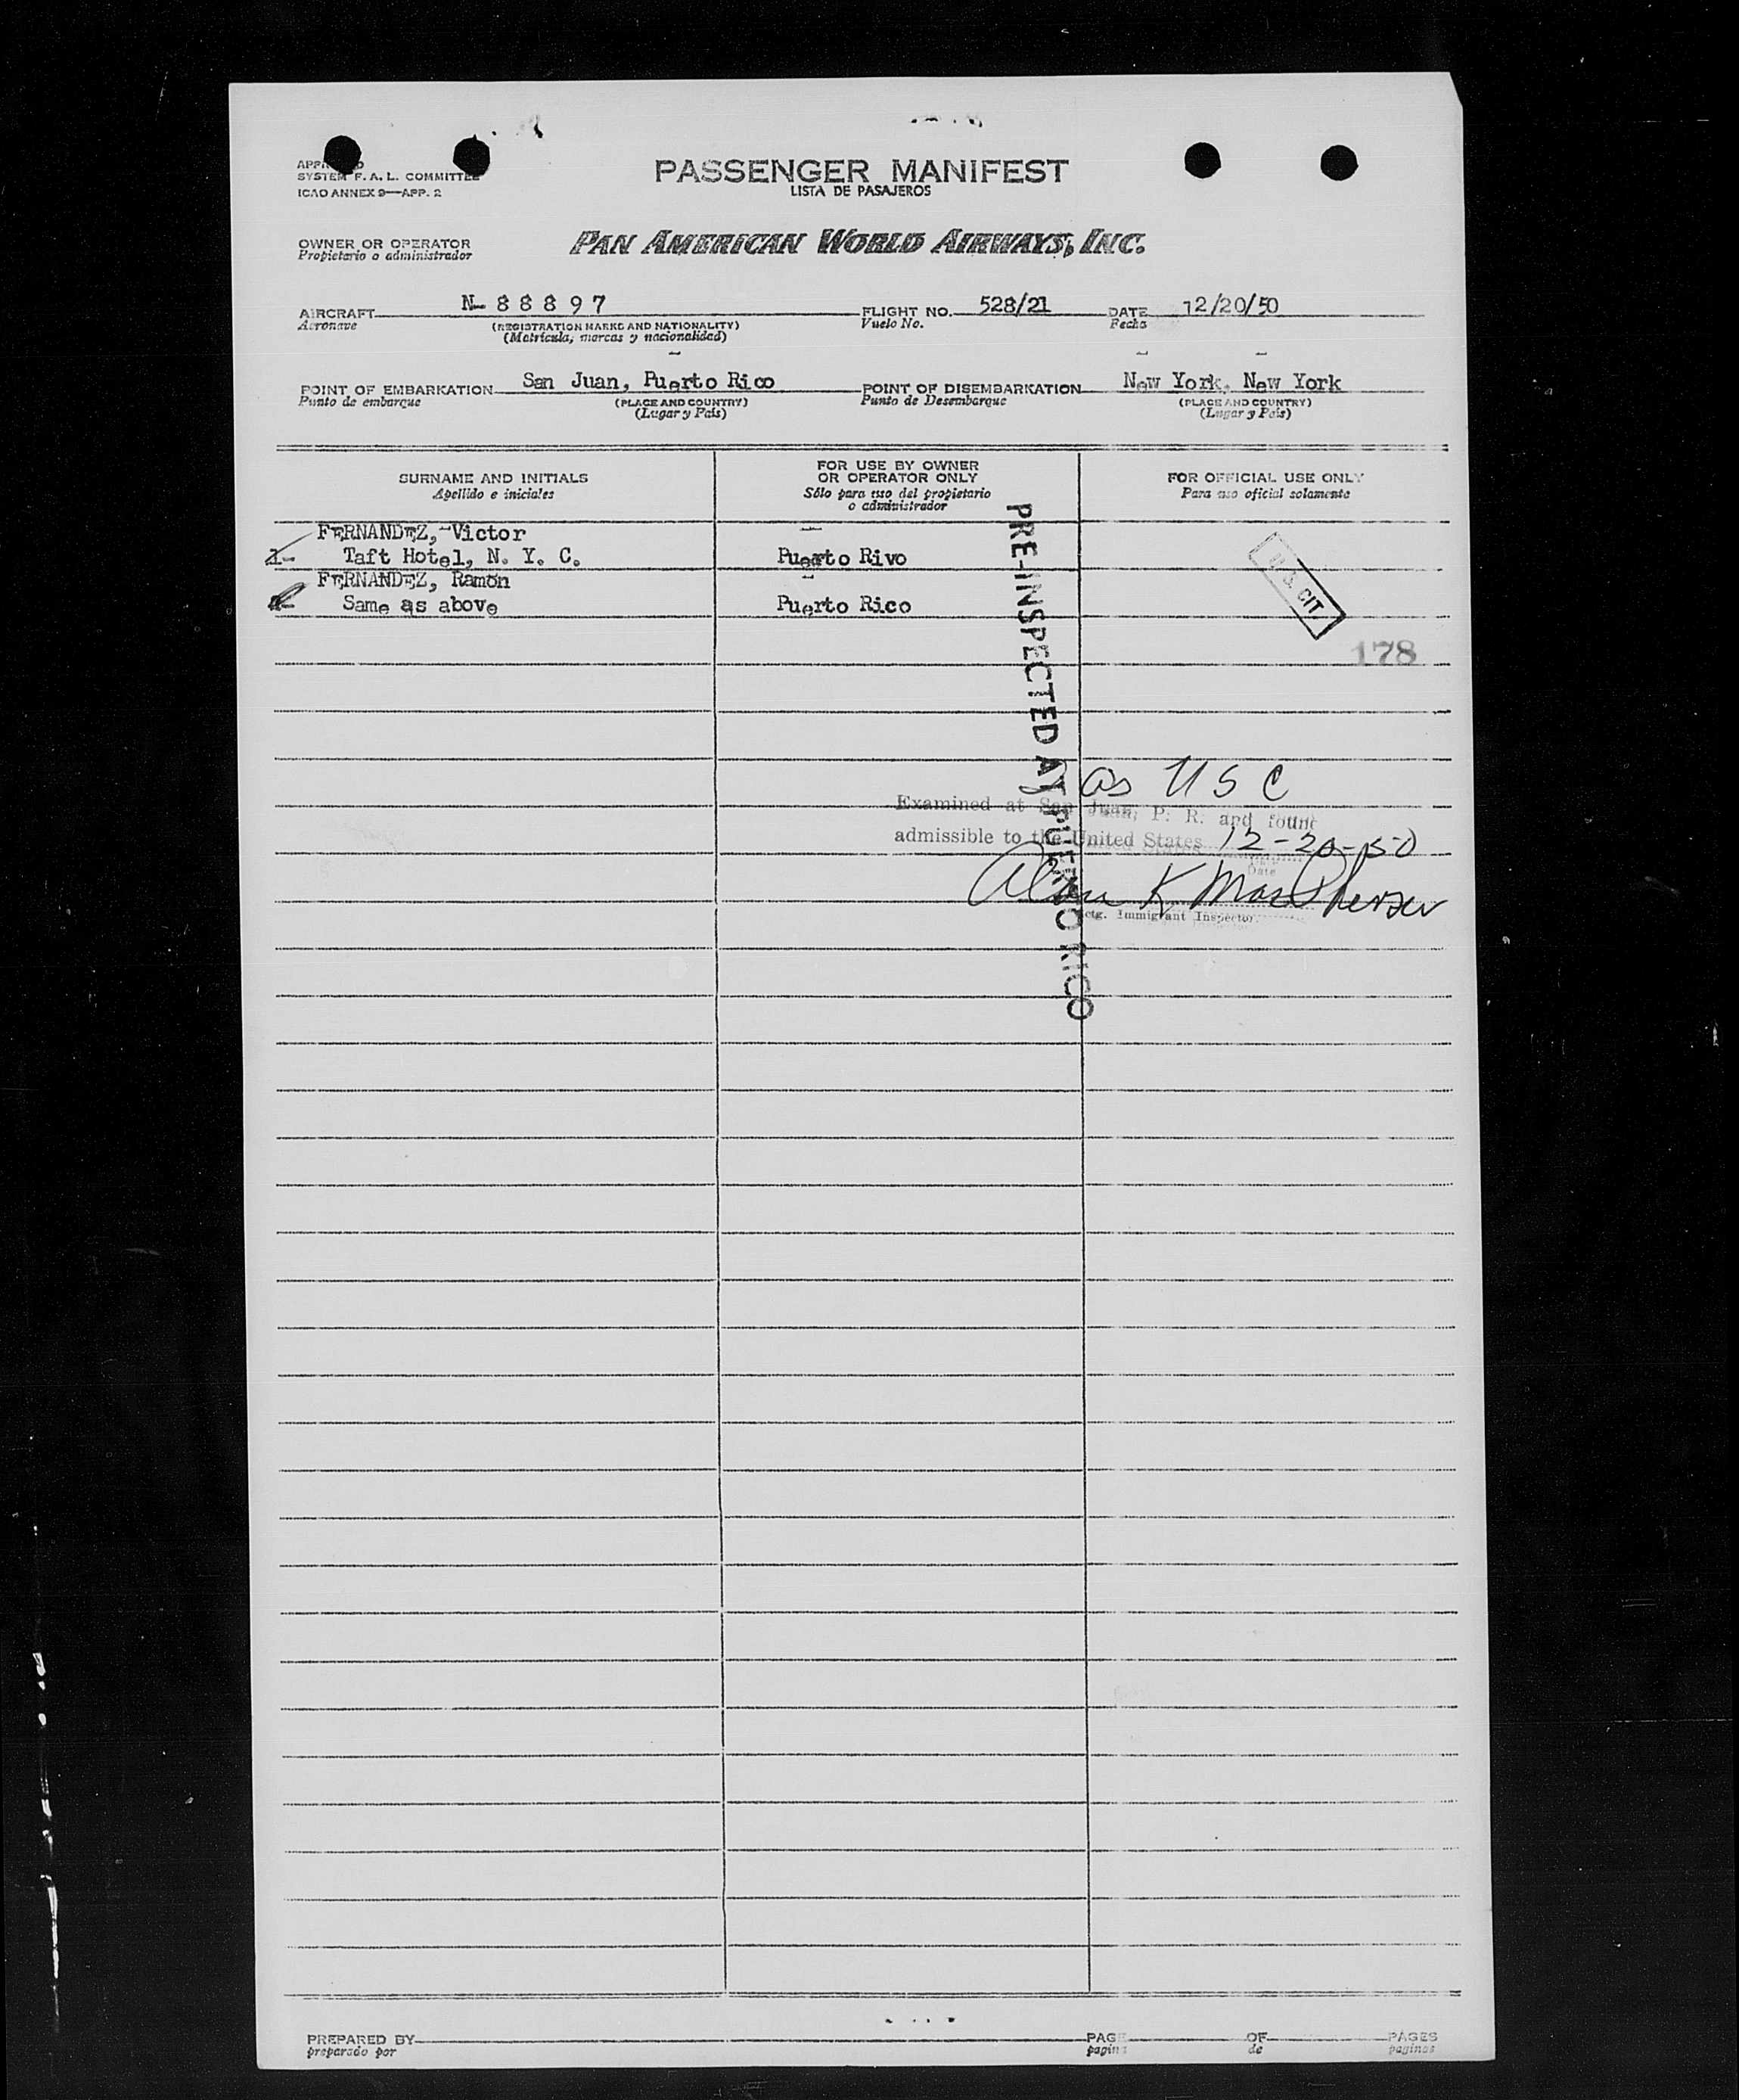 APPR D
SYSTEM F. A. L. COMMITTEE
ICAO ANNEX 9—APP. 2
PASSENGER MANIFEST
LISTA DE PASAJEROS
OWNER OR OPERATOR
Propietario o administrador
PAN AMERICAN WORLD AIRWAYS, INC.
AIRCRAFT N- 8 8 8 9 7 FLIGHT NO. 528/21 DATE 12/20/50
Aeronave (REGISTRATION MARKS AND NATIONALITY) Vuelo No. Fecha
(Matrícula, marcas y nacionalidad)
POINT OF EMBARKATION San Juan, Puerto Rico POINT OF DISEMBARKATION New York, New York
Punto de embarque (PLACE AND COUNTRY) Punto de Desembarque (PLACE AND COUNTRY)
(Lugar y País) (Lugar y País)
SURNAME AND INITIALS
Apellido e iniciales
FOR USE BY OWNER
OR OPERATOR ONLY
Sólo para uso del propietario
o administrador
FOR OFFICIAL USE ONLY
Para uso oficial solamente
FERNANDEZ, Victor
1- Taft Hotel, N. Y. C. Puerto Rivo
FERNANDEZ, Ramon
Same as above Puerto Rico
U.S. CIT.
178
PRE-INSPECTED AT PUERTO RICO
as U S C
Examined at San Juan, P. R. and found
admissible to the United States 12-20-50
Date
Alan K MacPherson
Actg. Immigrant Inspector
PREPARED BY PAGE OF PAGES
preparado por pagina de paginas